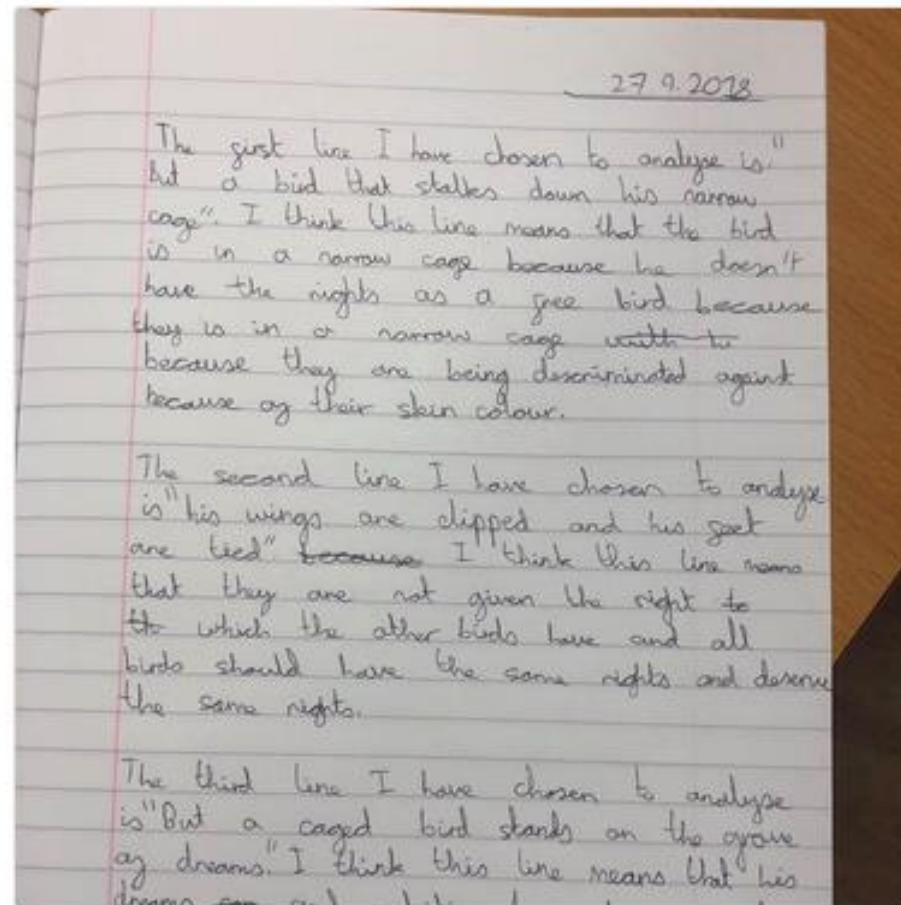 27.9.2018
The first line I have chosen to analyse is "
but a bird that stalks down his narrow
cage". I think this line means that the bird
is in a narrow cage because he doesn't
have the rights as a free bird because
they is in a narrow cage
because they are being descriminated againt
because of their skin colour.
The second line I have chosen to analyse
is "his wings are clipped and his feet
are tied" because I think this line means
that they are not given the right to
which the other birds have and all
birds should have the same rights and deserve
the same rights.
The third line I have chosen to analyse
is "But a caged bird stands on the grave
of dreams." I think this line means that his
dreams